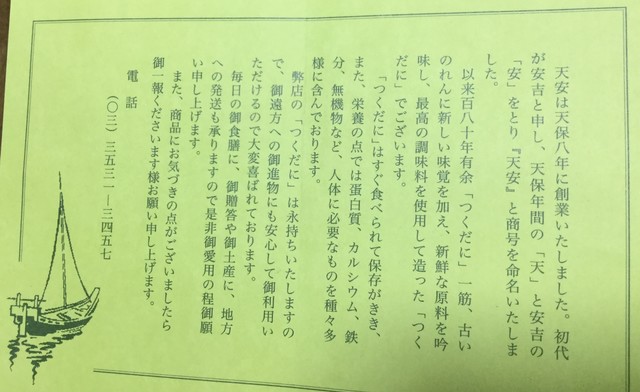 天安は天保八年に創業いたしました。初代
が安吉と申し、天保年間の「天」と安吉の
「安」をとり『天安』と商号を命名いたしま
した。
以来百八十年有余「つくだに」一筋、古い
のれんに新しい味覚を加え、新鮮な原料を吟
味し、最高の調味料を使用して造った「つく
だに」でございます。
「つくだに」はすぐ食べられて保存がきき、
また、栄養の点では蛋白質、カルシウム、鉄
分、無機物など、人体に必要なものを種々多
様に含んでおります。
弊店の「つくだに」は永持ちいたしますの
で、御遠方への御進物にも安心して御利用い
ただけるので大変喜ばれております。
毎日の御食膳に、御贈答や御土産に、地方
への発送も承りますので是非御愛用の程御願
い申し上げます。
また、商品にお気づきの点がございましたら
御一報くださいます様お願い申し上げます。
電話
(〇三)三五三一ー三四五七